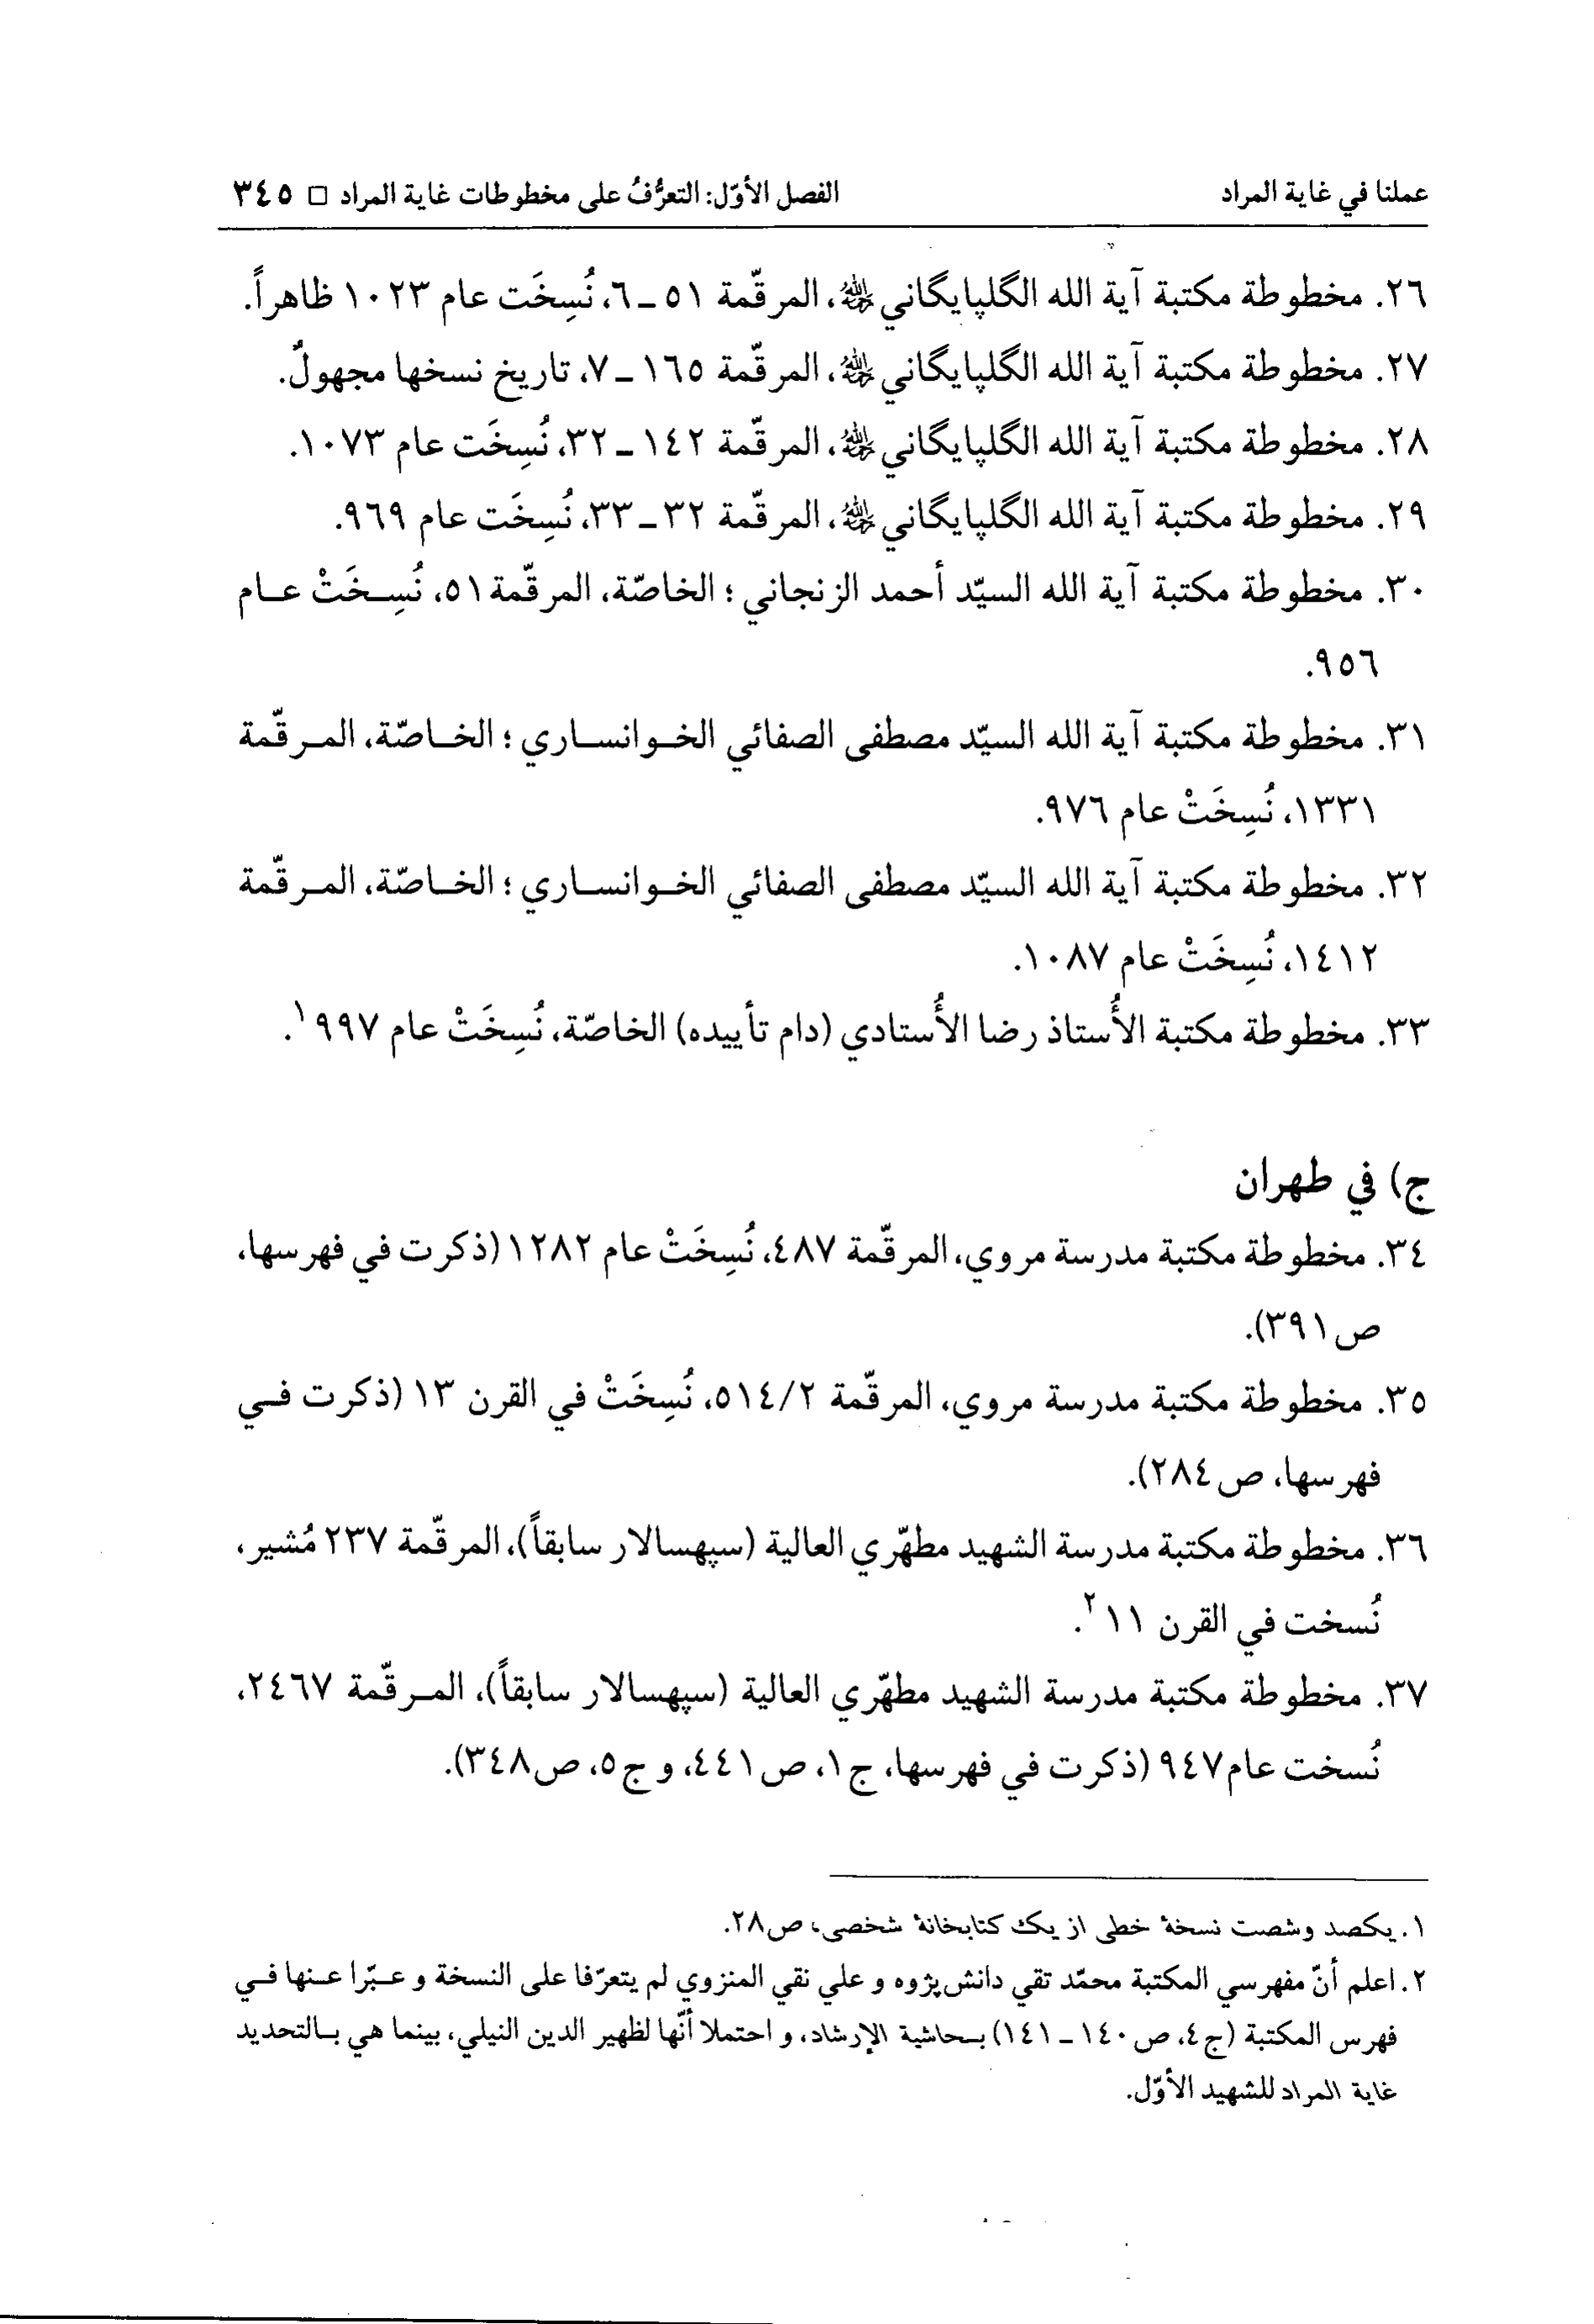 عملنا في غاية المراد
الفصل الأوّل: التعرُّفُ على مخطوطات غاية المراد □ ٣٤٥
٢٦. مخطوطة مكتبة آية الله الگلپايگاني ﵀، المرقّمة ٥١ ـ ٦، نُسِخَت عام ١٠٢٣ ظاهراً.
٢٧. مخطوطة مكتبة آية الله الگلپايگاني ﵀، المرقّمة ١٦٥ ـ ٧، تاريخ نسخها مجهولٌ.
٢٨. مخطوطة مكتبة آية الله الگلپايگاني ﵀، المرقّمة ١٤٢ ـ ٣٢، نُسِخَت عام ١٠٧٣.
٢٩. مخطوطة مكتبة آية الله الگلپايگاني ﵀، المرقّمة ٣٢ ـ ٣٣، نُسِخَت عام ٩٦٩.
٣٠. مخطوطة مكتبة آية الله السيّد أحمد الزنجاني ؛ الخاصّة، المرقّمة ٥١، نُسِخَتْ عام
٩٥٦.
٣١. مخطوطة مكتبة آية الله السيّد مصطفى الصفائي الخوانساري ؛ الخاصّة، المرقّمة
١٣٣١، نُسِخَتْ عام ٩٧٦.
٣٢. مخطوطة مكتبة آية الله السيّد مصطفى الصفائي الخوانساري ؛ الخاصّة، المرقّمة
١٤١٢، نُسِخَتْ عام ١٠٨٧.
٣٣. مخطوطة مكتبة الأُستاذ رضا الأُستادي (دام تأييده) الخاصّة، نُسِخَتْ عام ٩٩٧ ١.
ج) في طهران
٣٤. مخطوطة مكتبة مدرسة مروي، المرقّمة ٤٨٧، نُسِخَتْ عام ١٢٨٢ (ذكرت في فهرسها،
ص ٣٩١).
٣٥. مخطوطة مكتبة مدرسة مروي، المرقّمة ٥١٤/٢، نُسِخَتْ في القرن ١٣ (ذكرت في
فهرسها، ص ٢٨٤).
٣٦. مخطوطة مكتبة مدرسة الشهيد مطهّري العالية (سپهسالار سابقاً)، المرقّمة ٢٣٧ مُشير،
نُسخت في القرن ١١ ٢.
٣٧. مخطوطة مكتبة مدرسة الشهيد مطهّري العالية (سپهسالار سابقاً)، المرقّمة ٢٤٦٧،
نُسخت عام ٩٤٧ (ذكرت في فهرسها، ج ١، ص ٤٤١، و ج ٥، ص ٣٤٨).
١. يكصد وشصت نسخهٔ خطى از يك كتابخانهٔ شخصى، ص ٢٨.
٢. اعلم أنّ مفهرسي المكتبة محمّد تقي دانش‌پژوه و علي نقي المنزوي لم يتعرّفا على النسخة و عبّرا عنها في
فهرس المكتبة (ج ٤، ص ١٤٠ ـ ١٤١) بحاشية الإرشاد، و احتملا أنّها لظهير الدين النيلي، بينما هي بالتحديد
غاية المراد للشهيد الأوّل.